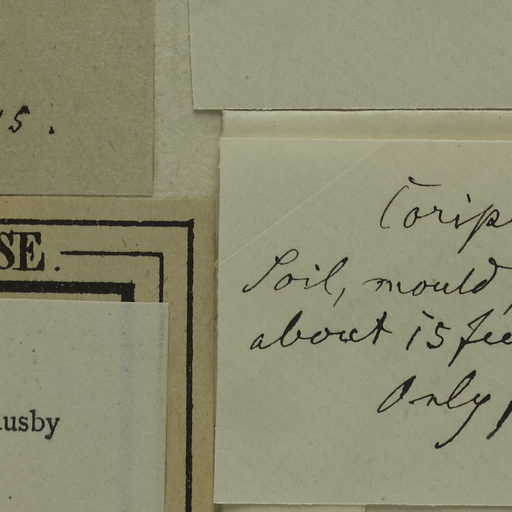 5.
SE.
usby
Corip
Soil, mould,
about 15 fee
Only